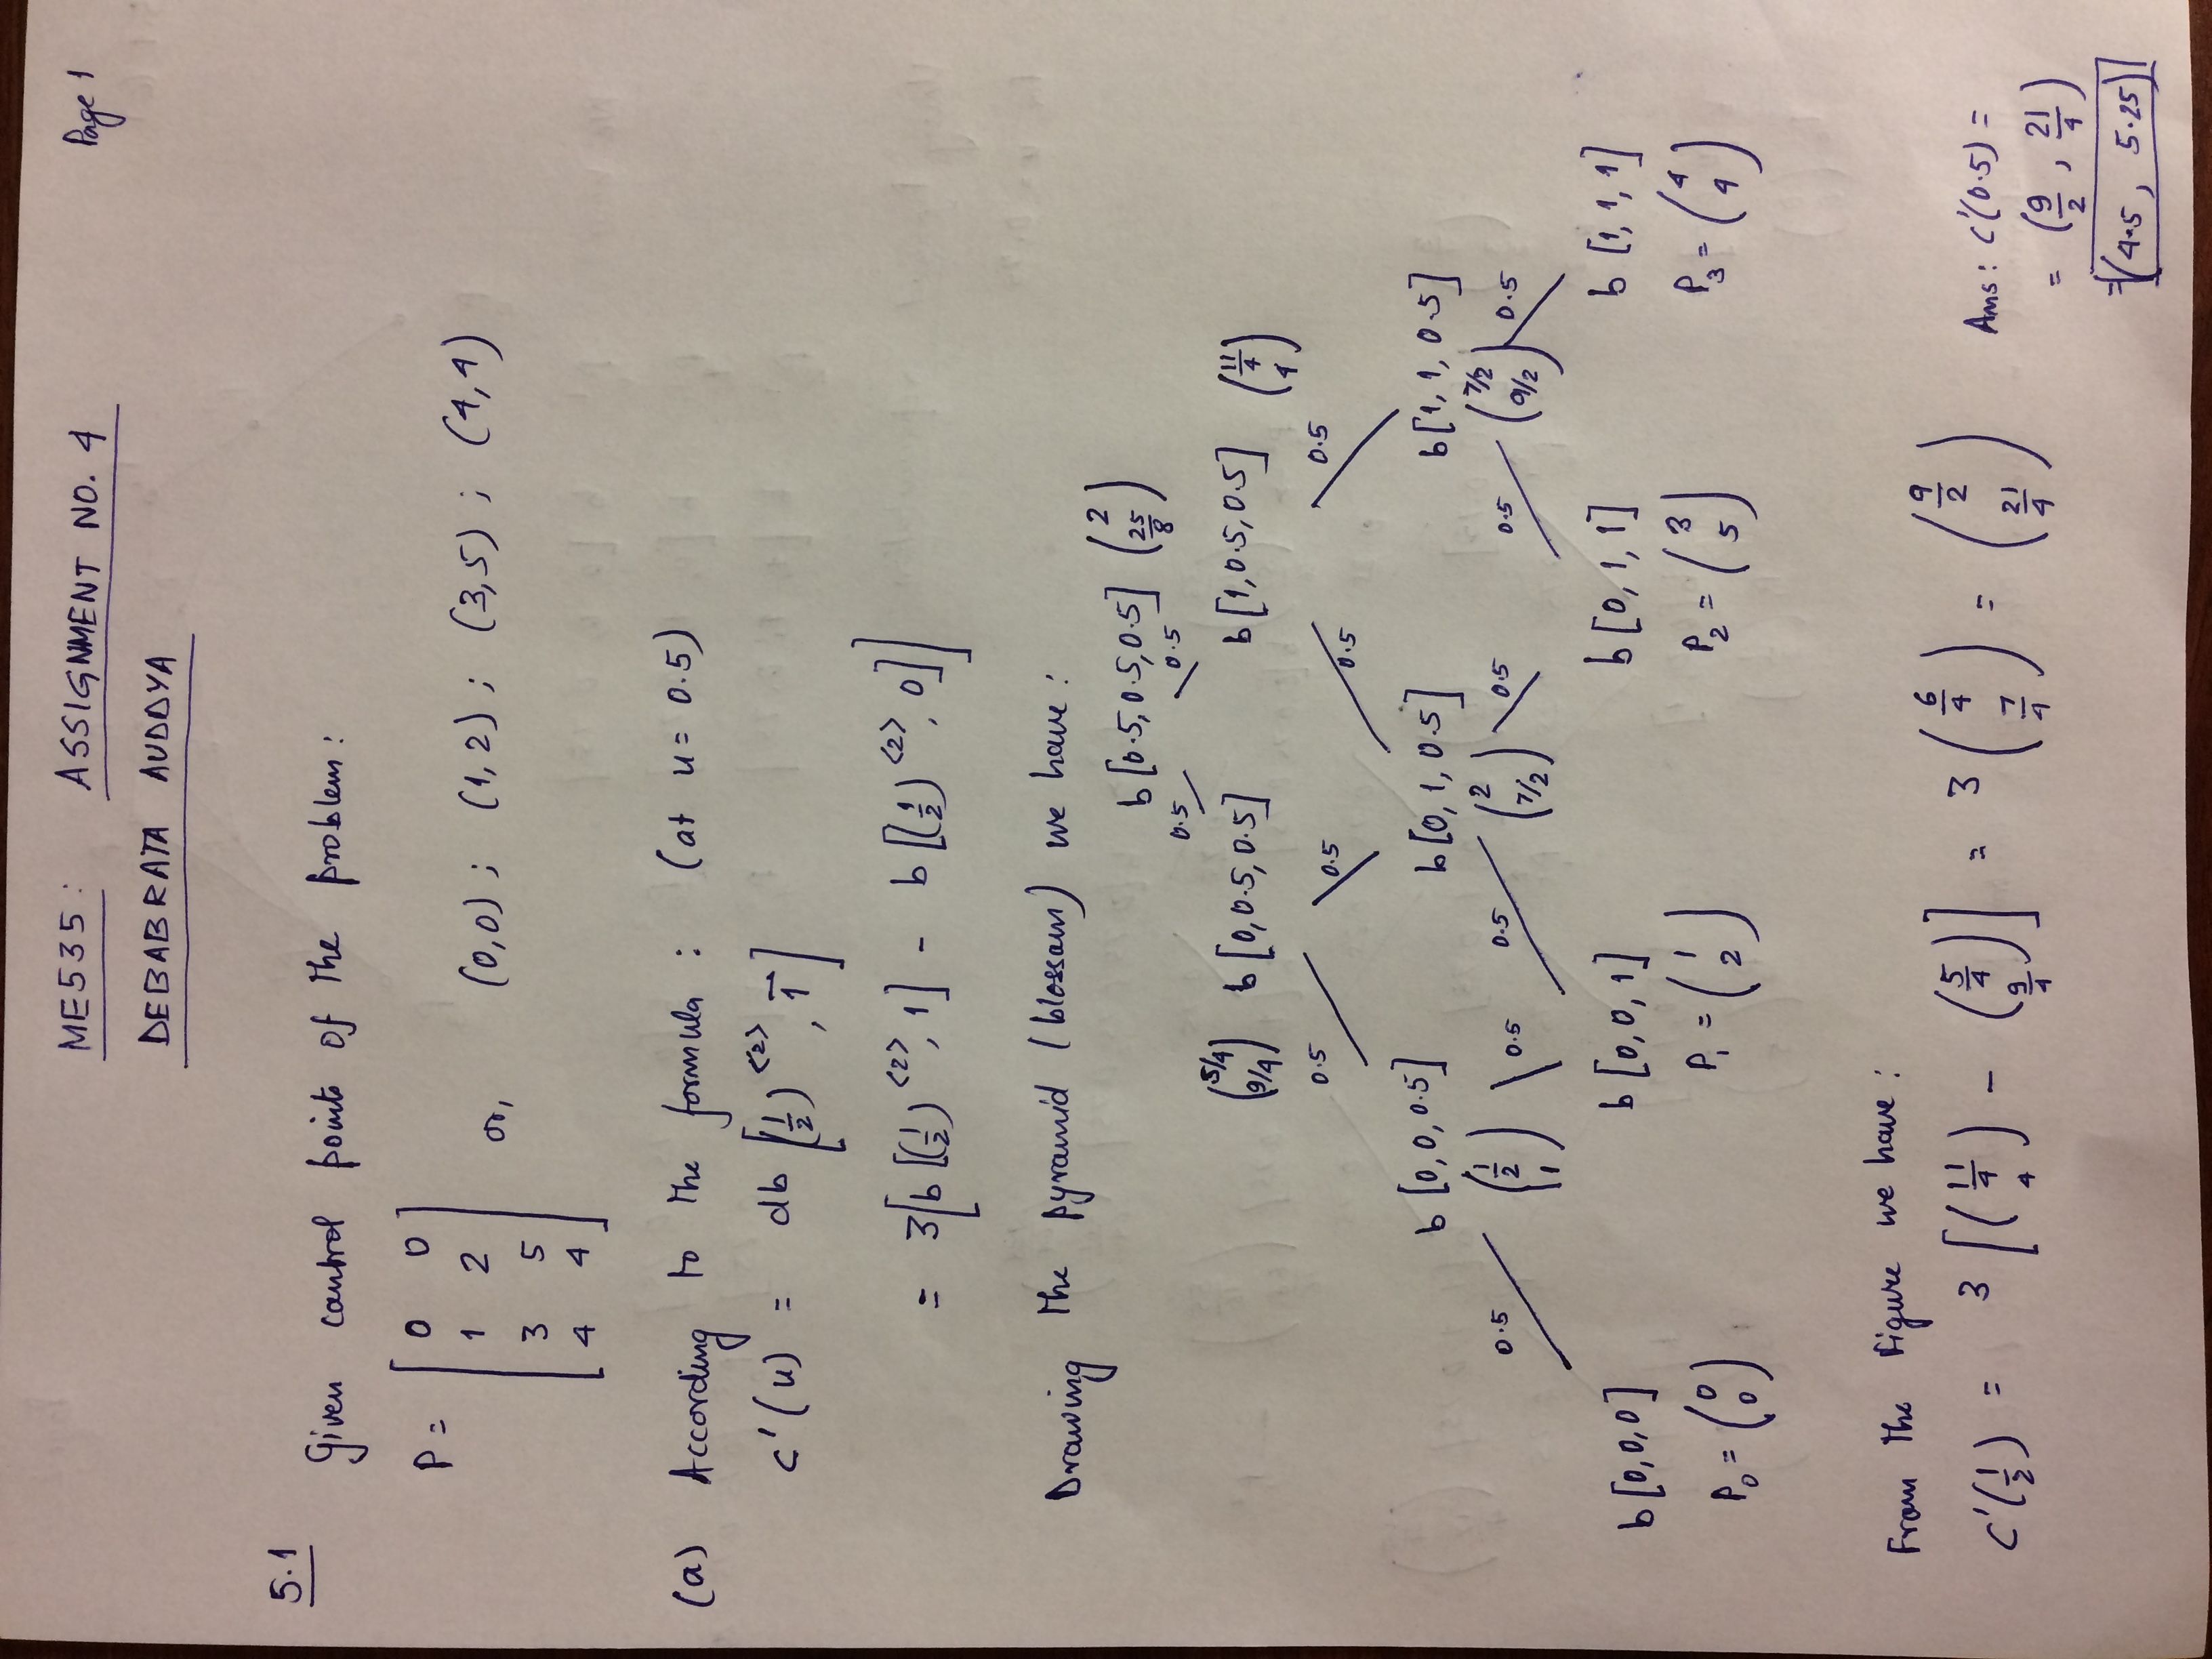 ME535: ASSIGNMENT NO. 4 Page 1
DEBABRATA AUDDYA
5.1
Given control points of the problem:
P = [0 0
1 2
3 5
4 4] or, (0,0); (1,2); (3,5); (4,4)
(a) According to the formula: (at u = 0.5)
c'(u) = db [(1/2)^<2>, 1⃗]
= 3[b[(1/2)^<2>, 1] - b[(1/2)^<2>, 0]]
Drawing the pyramid (blossom) we have:
b[0.5,0.5,0.5] (2, 25/8)
0.5 0.5
(5/4, 9/4) b[0,0.5,0.5] b[1,0.5,0.5] (11/4, 4)
0.5 0.5 0.5 0.5
b[0,0,0.5] b[0,1,0.5] b[1,1,0.5]
0.5 (1/2, 1) 0.5 0.5 (2, 7/2) 0.5 0.5 (7/2, 9/2) 0.5
b[0,0,0] b[0,0,1] b[0,1,1] b[1,1,1]
P₀ = (0, 0) P₁ = (1, 2) P₂ = (3, 5) P₃ = (4, 4)
From the figure we have:
c'(1/2) = 3 [(11/4, 4) - (5/4, 9/4)] = 3 (6/4, 7/4) = (9/2, 21/4)
Ans: c'(0.5) =
= (9/2, 21/4)
= (4.5, 5.25)